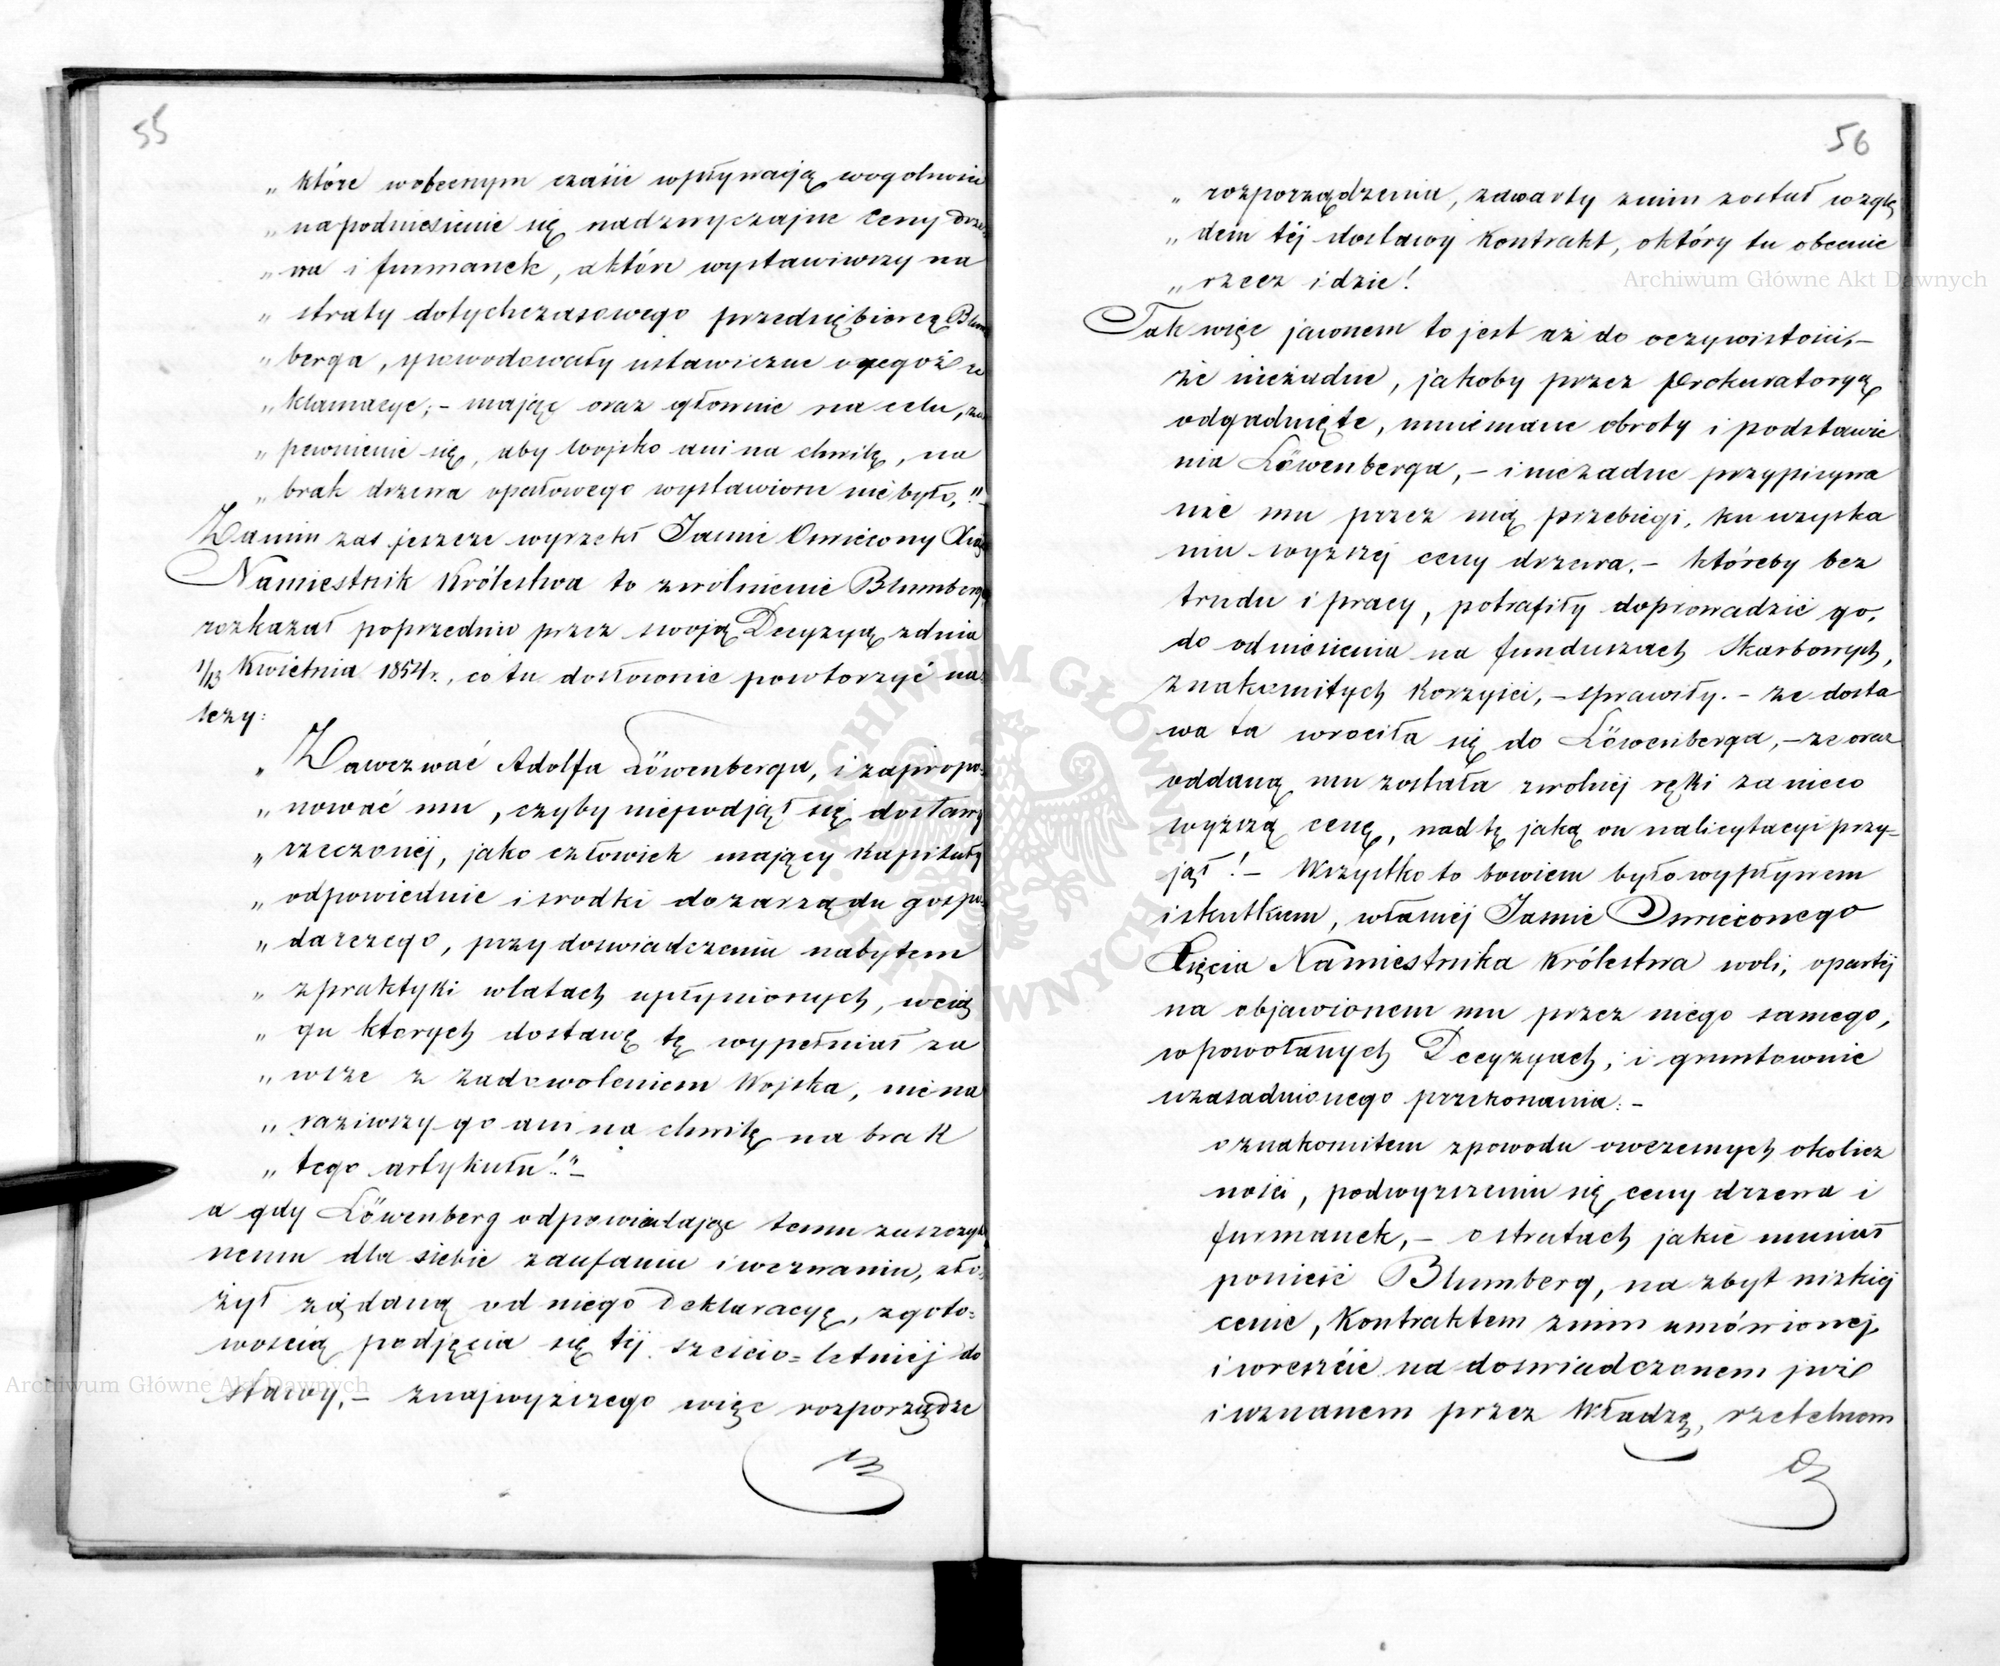 55
„ które wobecnym czasie wpływają wogolności
„ na podniesienie się nadzwyczajne Ceny drze-
„ wa i furmanek, a które wystawiwszy na
„ straty dotychczasowego przedsiębiorcę Blum
„ berga, spowodowały ustawiczne o tegoż re
„ klamacye; – mając oraz głównie na celu, za
„ pewnienie się, aby Wojsko ani na chwilę, na
„ brak drzewa opałowego wystawione nie było,!"–
Zanim zaś jeszcze wyrzekł Jaśnie Oświecony Xiąże
Namiestnik Królestwa to zwolnienie Blumberga,
rozkazał poprzednio przez swoją Decyzyą zdnia
1/13 Kwietnia 1854 r., co tu dosłownie powtorzyć na-
leży:
„ Zawezwać Adolfa Löwenberga, i zapropo-
„ nować mu, czyby niepodjął się dostawy
„ rzeczonéj, jako człowiek mający Kapitały
„ odpowiednie i srodki do zarządu gospo-
„ darczego, przy doswiadczeniu nabytem
„ z praktyki wlatach upłynionych, wcią
„ gu ktorych dostawę tę wypełniał za
„ wsze z zadowoleniem Wojska, nie na
„ raziwszy go ani na chwilę na brak
„ tego artykułu!."–
a gdy Löwenberg odpowiadając temu zaszczyt
nemu dla siebie zaufaniu i wezwaniu, zło-
żył żądaną od niego Deklaracyę, z goto-
wością podjęcia się téj sześcio-letniéj do
stawy, – znajwyższego więc rozporządze
56
„ rozporządzenia, zawarty znim został wzglę
„ dem téj dostawy Kontrakt, o który tu obecnie
„ rzecz idzie!
Tak więc jawnem to jest aż do oczywistości, –
że nieżadne, jakoby przez Prokuratoryą
odgadnięte, mniemane obroty i podstawie
nia Löwenberga, – i nieżadne przypisywa
ne mu przez nią przebiegi, ku uzyska
niu wyższéj ceny drzewa. – któreby bez
trudu i pracy, potrafiły doprowadzić go,
do odniesienia na funduszach Skarbowych,
znakomitych Korzyści, – sprawiły. – że dosta
wa ta wrociła się do Löwenberga, – że oraz
oddaną mu została zwolnéj ręki za nieco
wyższą cenę, nad tę jaką on nalicytacyi przy-
jął! – Wszystko to bowiem było wypływem
i skutkiem, własnéj Jaśnie Oświeconego
Xięcia Namiestnika Królestwa woli, opartéj
na objawionem mu przez niego samego,
w powołanych Decyzyach, i gruntownie
uzasadnionego przekonania: –
o znakomitem z powodu owczesnych okolicz
ności, podwyższeniu się ceny drzewa i
furmanek, – o stratach jakie musiał
ponieść Blumberg, na zbyt nizkiéj
cenie, Kontraktem znim umówionéj,
i wreszcie na doswiadczonem już
i uznanem przez Władzę, rzetelnom
Archiwum Główne Akt Dawnych
Archiwum Główne Akt Dawnych
ARCHIWUM GŁÓWNE AKT DAWNYCH